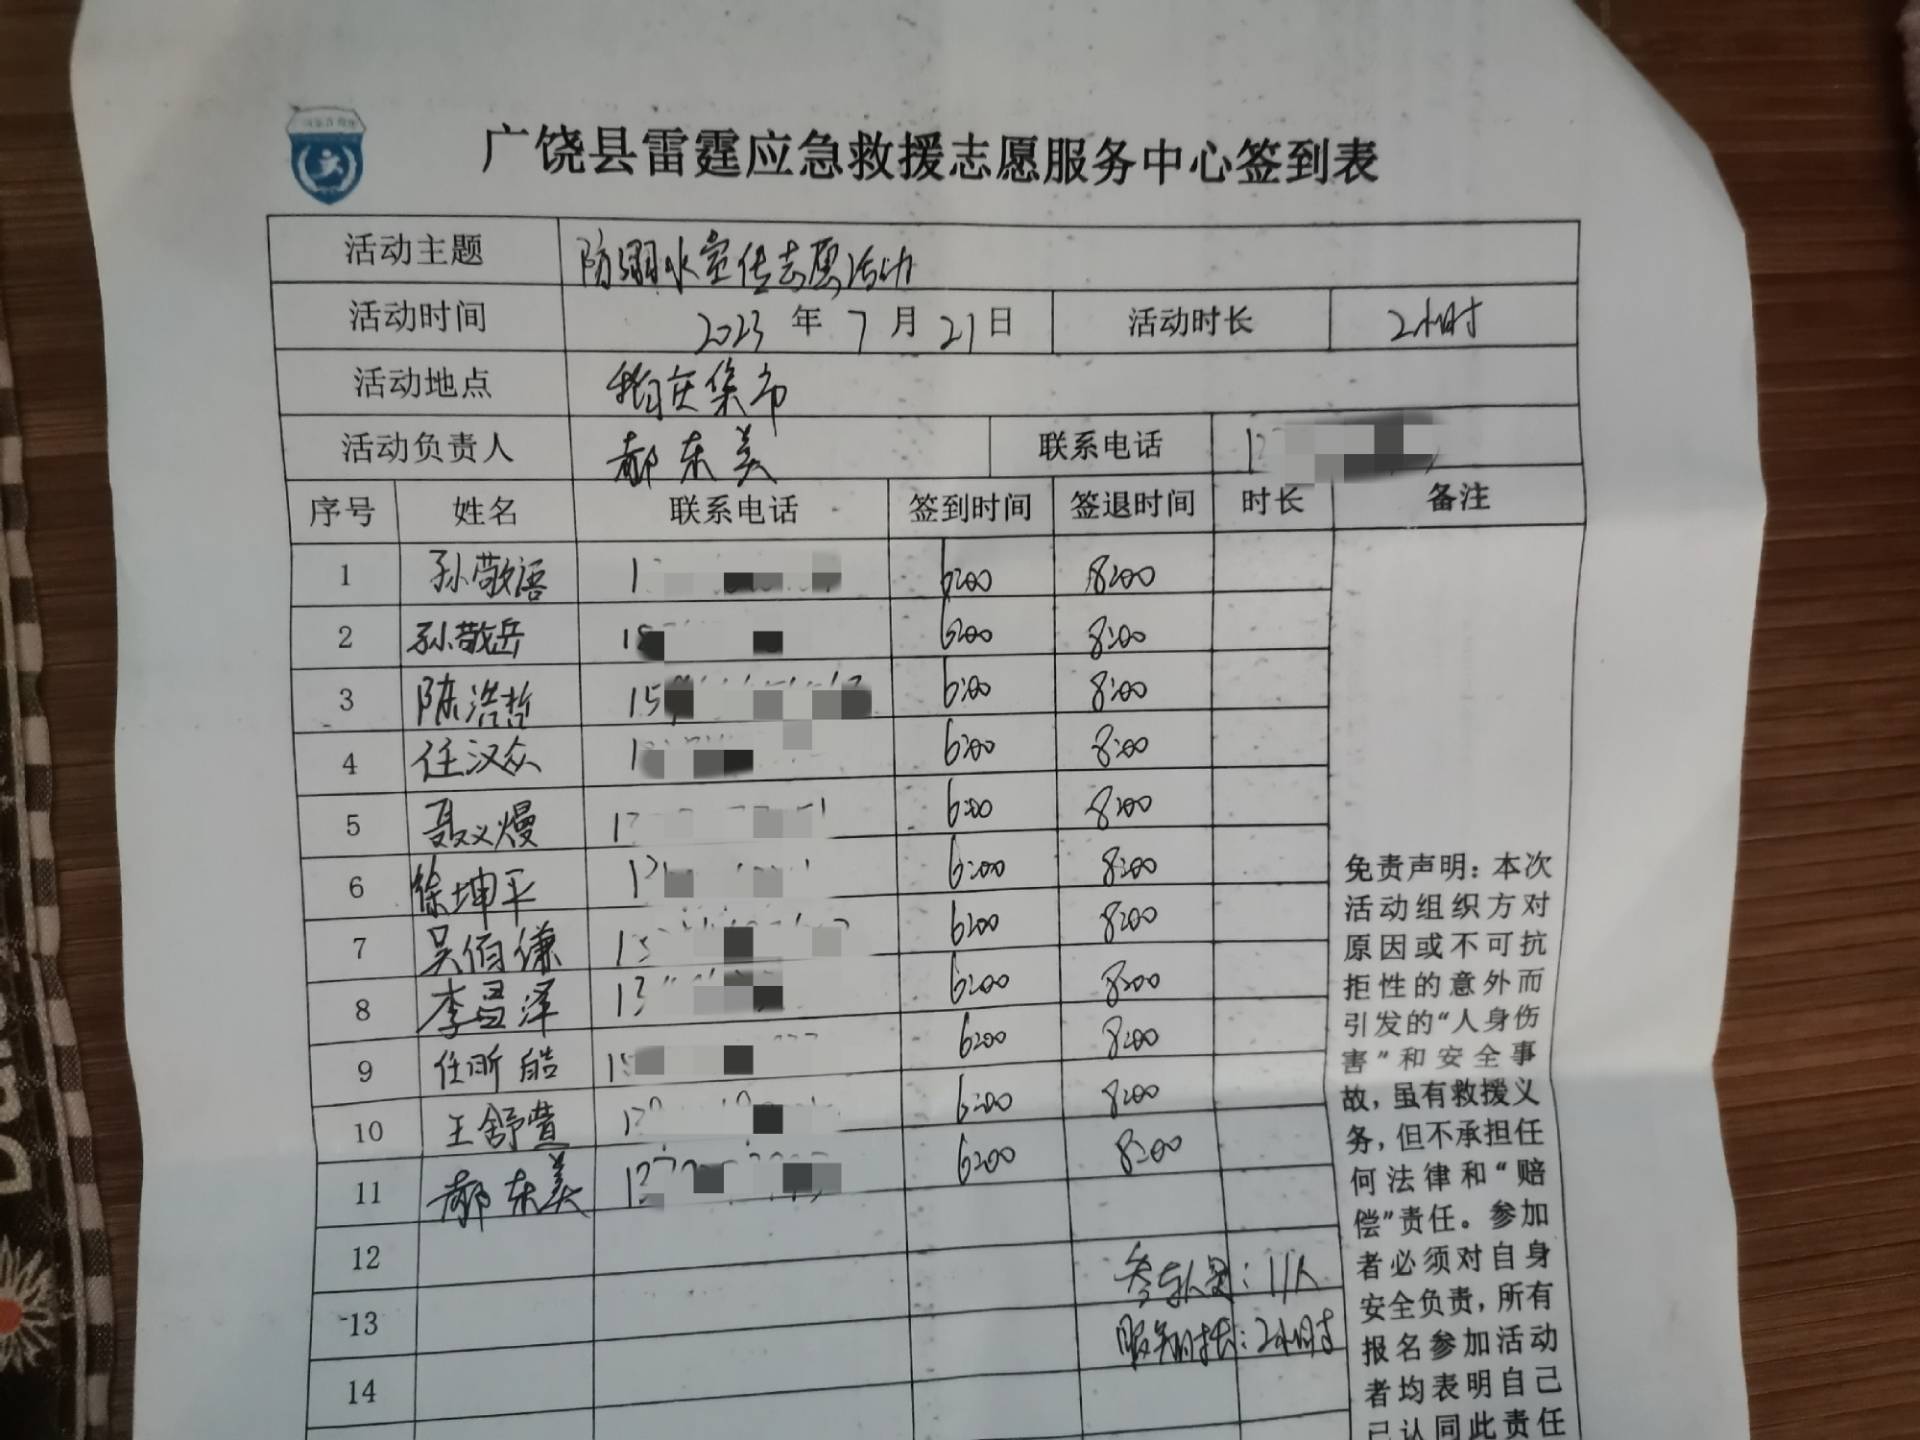 广饶县雷霆应急救援志愿服务中心签到表
活动主题 防溺水宣传志愿活动
活动时间 2023 年 7 月 21 日 活动时长 2小时
活动地点 稍庄集市
活动负责人 郝东美 联系电话 1
序号 姓名 联系电话 签到时间 签退时间 时长 备注
1 孙敬语 1 6:00 8:00
2 孙敬岳 18 6:00 8:00
3 陈浩哲 15 6:00 8:00
4 任汉众 1 6:00 8:00
5 聂义熳 1 6:00 8:00
6 徐坤平 1 6:00 8:00
7 吴佰谦 1 6:00 8:00
8 李昌泽 13 6:00 8:00
9 任昕皓 15 6:00 8:00
10 王舒萱 1 6:00 8:00
11 郝东美 1 6:00 8:00
12
13
14
参与人员：11人
服务时长：2小时
免责声明：本次
活动组织方对
原因或不可抗
拒性的意外而
引发的“人身伤
害”和安全事
故，虽有救援义
务，但不承担任
何法律和“赔
偿”责任。参加
者必须对自身
安全负责，所有
报名参加活动
者均表明自己
已认同此责任